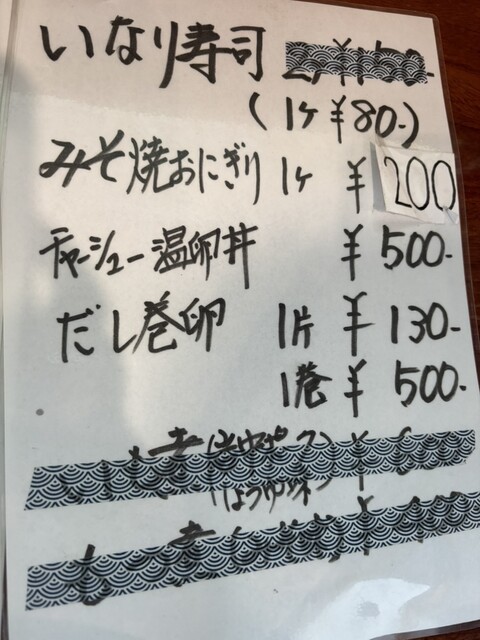 いなり寿司
(1ヶ ¥80-)
みそ焼おにぎり 1ヶ ¥200
チャーシュー温卵丼 ¥500-
だし巻卵 1片 ¥130-
1巻 ¥500-